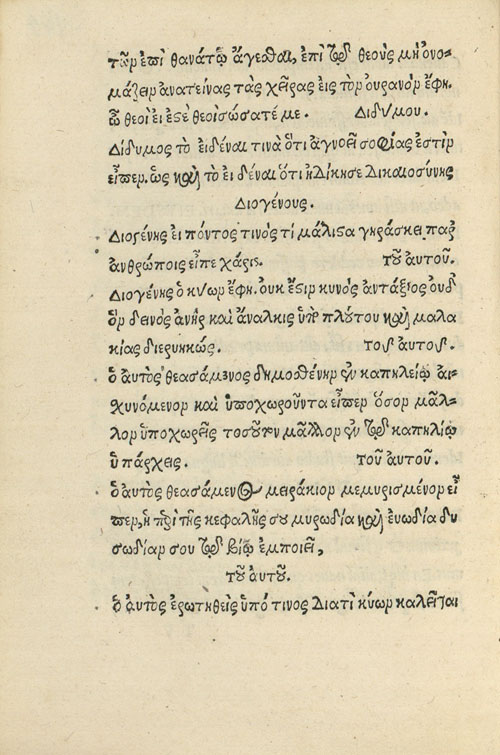 τῶν ἐπὶ θανάτῳ ἄγεσθαι, ἐπὶ τῷ θεοὺς μὴ ὀνο-
μάζειν ἀνατείνας τὰς χεῖρας εἰς τὸν οὐρανὸν ἔφη.
ὦ θεοὶ εἰ ἐστὲ θεοὶ σώσατέ με. Διδύμου.
Δίδυμος τὸ εἰδέναι τινὰ ὅτι ἀγνοεῖ σοφίας ἐστὶν
εἶπεν. ὡς καὶ τὸ εἰδέναι ὅτι ἠδίκησε δικαιοσύνης
Διογένους.
Διογένης εἰπόντος τινὸς τί μάλιστα γηράσκει παρ
ἀνθρώποις εἶπε χάρις. τοῦ αὐτοῦ.
Διογένης ὁ κύων ἔφη. οὐκ ἔστιν κυνὸς ἀντάξιος οὐδ
ὃν δεινὸς ἀνὴρ καὶ ἄναλκις ὑπὸ πλούτου καὶ μαλα
κίας διερυηκώς. τοῦ αὐτοῦ.
ὁ αὐτὸς θεασάμενος δημοσθένην ἐν καπηλείῳ αἰ-
χυνόμενον καὶ ὑποχωροῦντα εἶπεν ὅσον μᾶλ-
λον ὑποχωρεῖς τοσοῦτον μᾶλλον ἐν τῷ καπηλίῳ
ὑπάρχεις. τοῦ αὐτοῦ.
ὁ αὐτὸς θεασάμενος μειράκιον μεμυρισμένον εἶ
πεν, ἡ περὶ τῆς κεφαλῆς σου μυρωδία καὶ εὐωδία δυ
σωδίαν σου τῷ βίῳ ἐμποιεῖ,
τοῦ αὐτοῦ.
ὁ αὐτὸς ἐρωτηθεὶς ὑπό τινος Διατὶ κύων καλεῖται